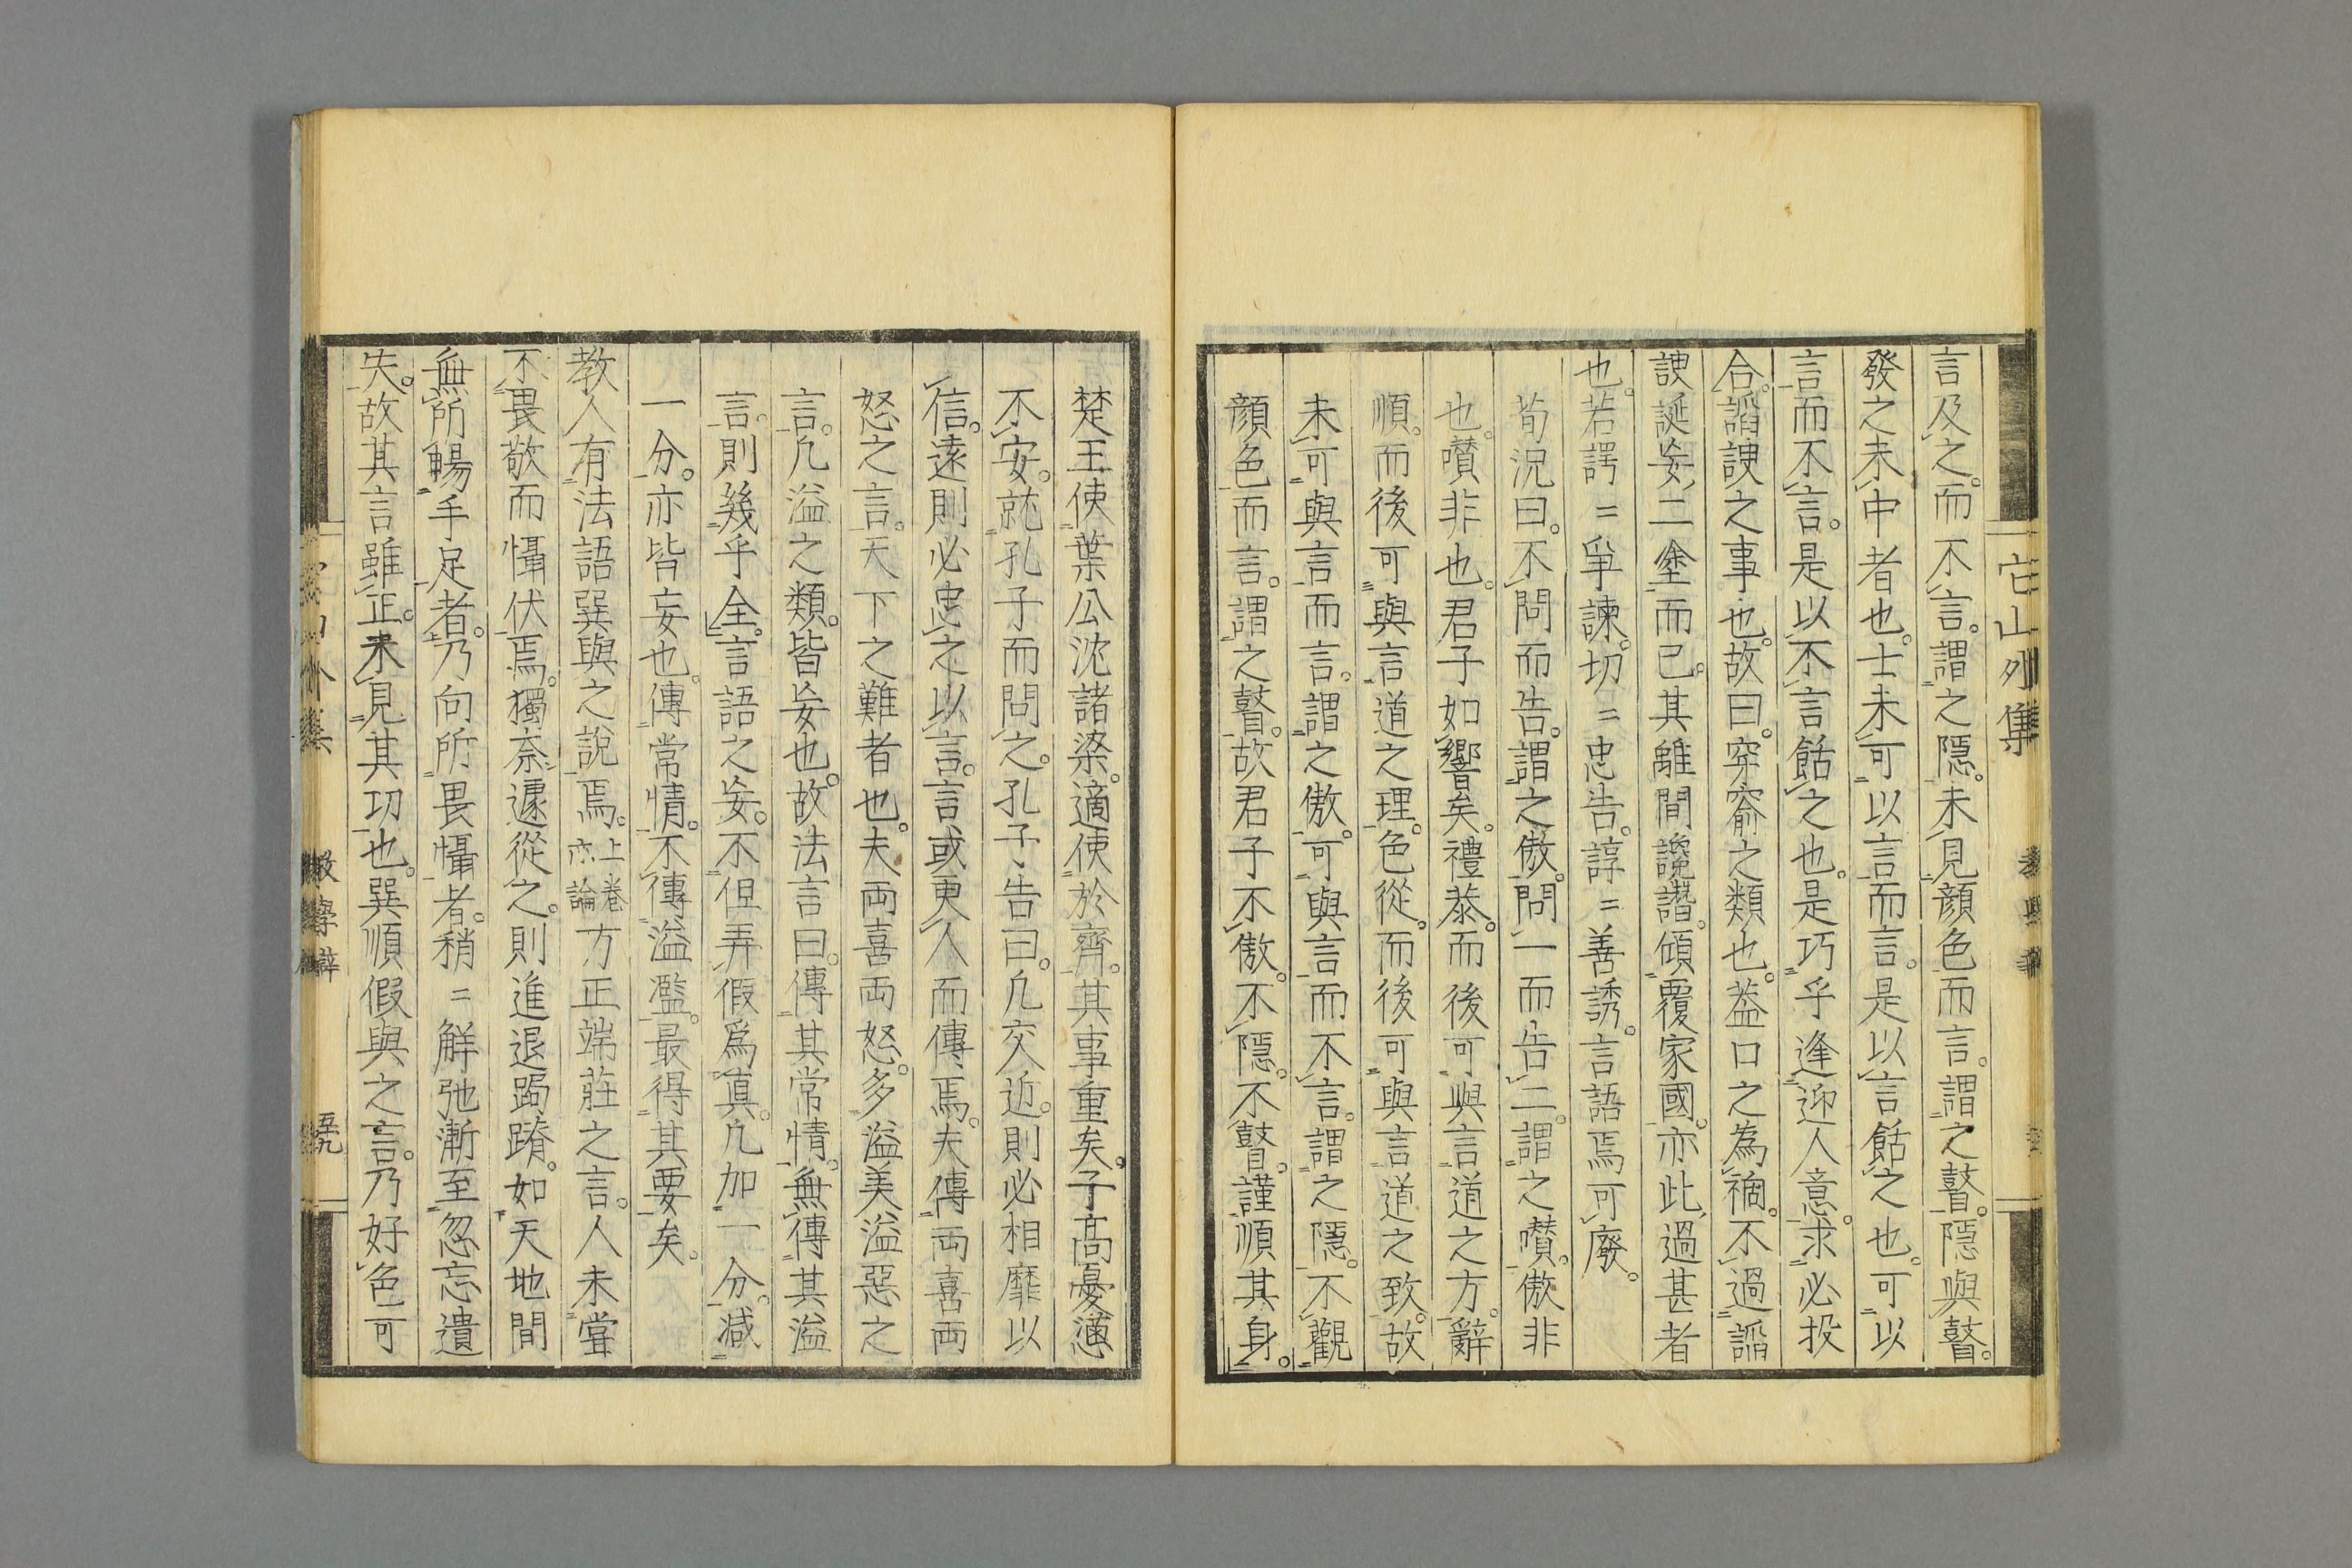 言及之。而不言。謂之隱。未見顔色而言。謂之瞽。隱與瞽。
發之未中者也。士未可以言而言。是以言餂之也。可以
言而不言。是以不言餂之也。是巧乎逢迎人意。求必投
合。謟諛之事也。故曰。穿窬之類也。葢口之為禍。不過謟
諛誕妄二塗而已。其離間讒譖。傾覆家國。亦此過甚者
也。若諤〻爭諫。切〻忠告。諄〻善誘。言語焉可廢。
荀況曰。不問而告。謂之傲。問一而告二。謂之囋。傲非
也。囋非也。君子如響矣。禮恭。而後可與言道之方。辭
順。而後可與言道之理。色從。而後可與言道之致。故
未可與言而言。謂之傲。可與言而不言。謂之隱。不觀
顔色而言。謂之瞽。故君子不傲。不隱。不瞽。謹順其身。
楚王使葉公沈諸梁。適使於齊。其事重矣。子高憂懣
不安。就孔子而問之。孔子告曰。凢交近。則必相靡以
信。遠則必忠之以言。言或更人而傳焉。夫傳兩喜兩
怒之言。天下之難者也。夫兩喜兩怒。多溢美溢惡之
言。凢溢之類。皆妄也。故法言曰。傳其常情。無傳其溢
言。則幾乎全。言語之妄。不但弄假爲真。凢加一分。減
一分。亦皆妄也。傳常情。不傳溢濫。最得其要矣。
教人有法語巽與之說焉。上卷亦論方正端莊之言。人未甞
不畏敬而懾伏焉。獨奈遽從之。則進退跼蹐。如天地間
無所暢手足者。乃向所畏懾者。稍〻解弛漸至忽忘遺
失。故其言雖正。未見其功也。巽順假與之言。乃好色可
它山外集
教學辭
五九